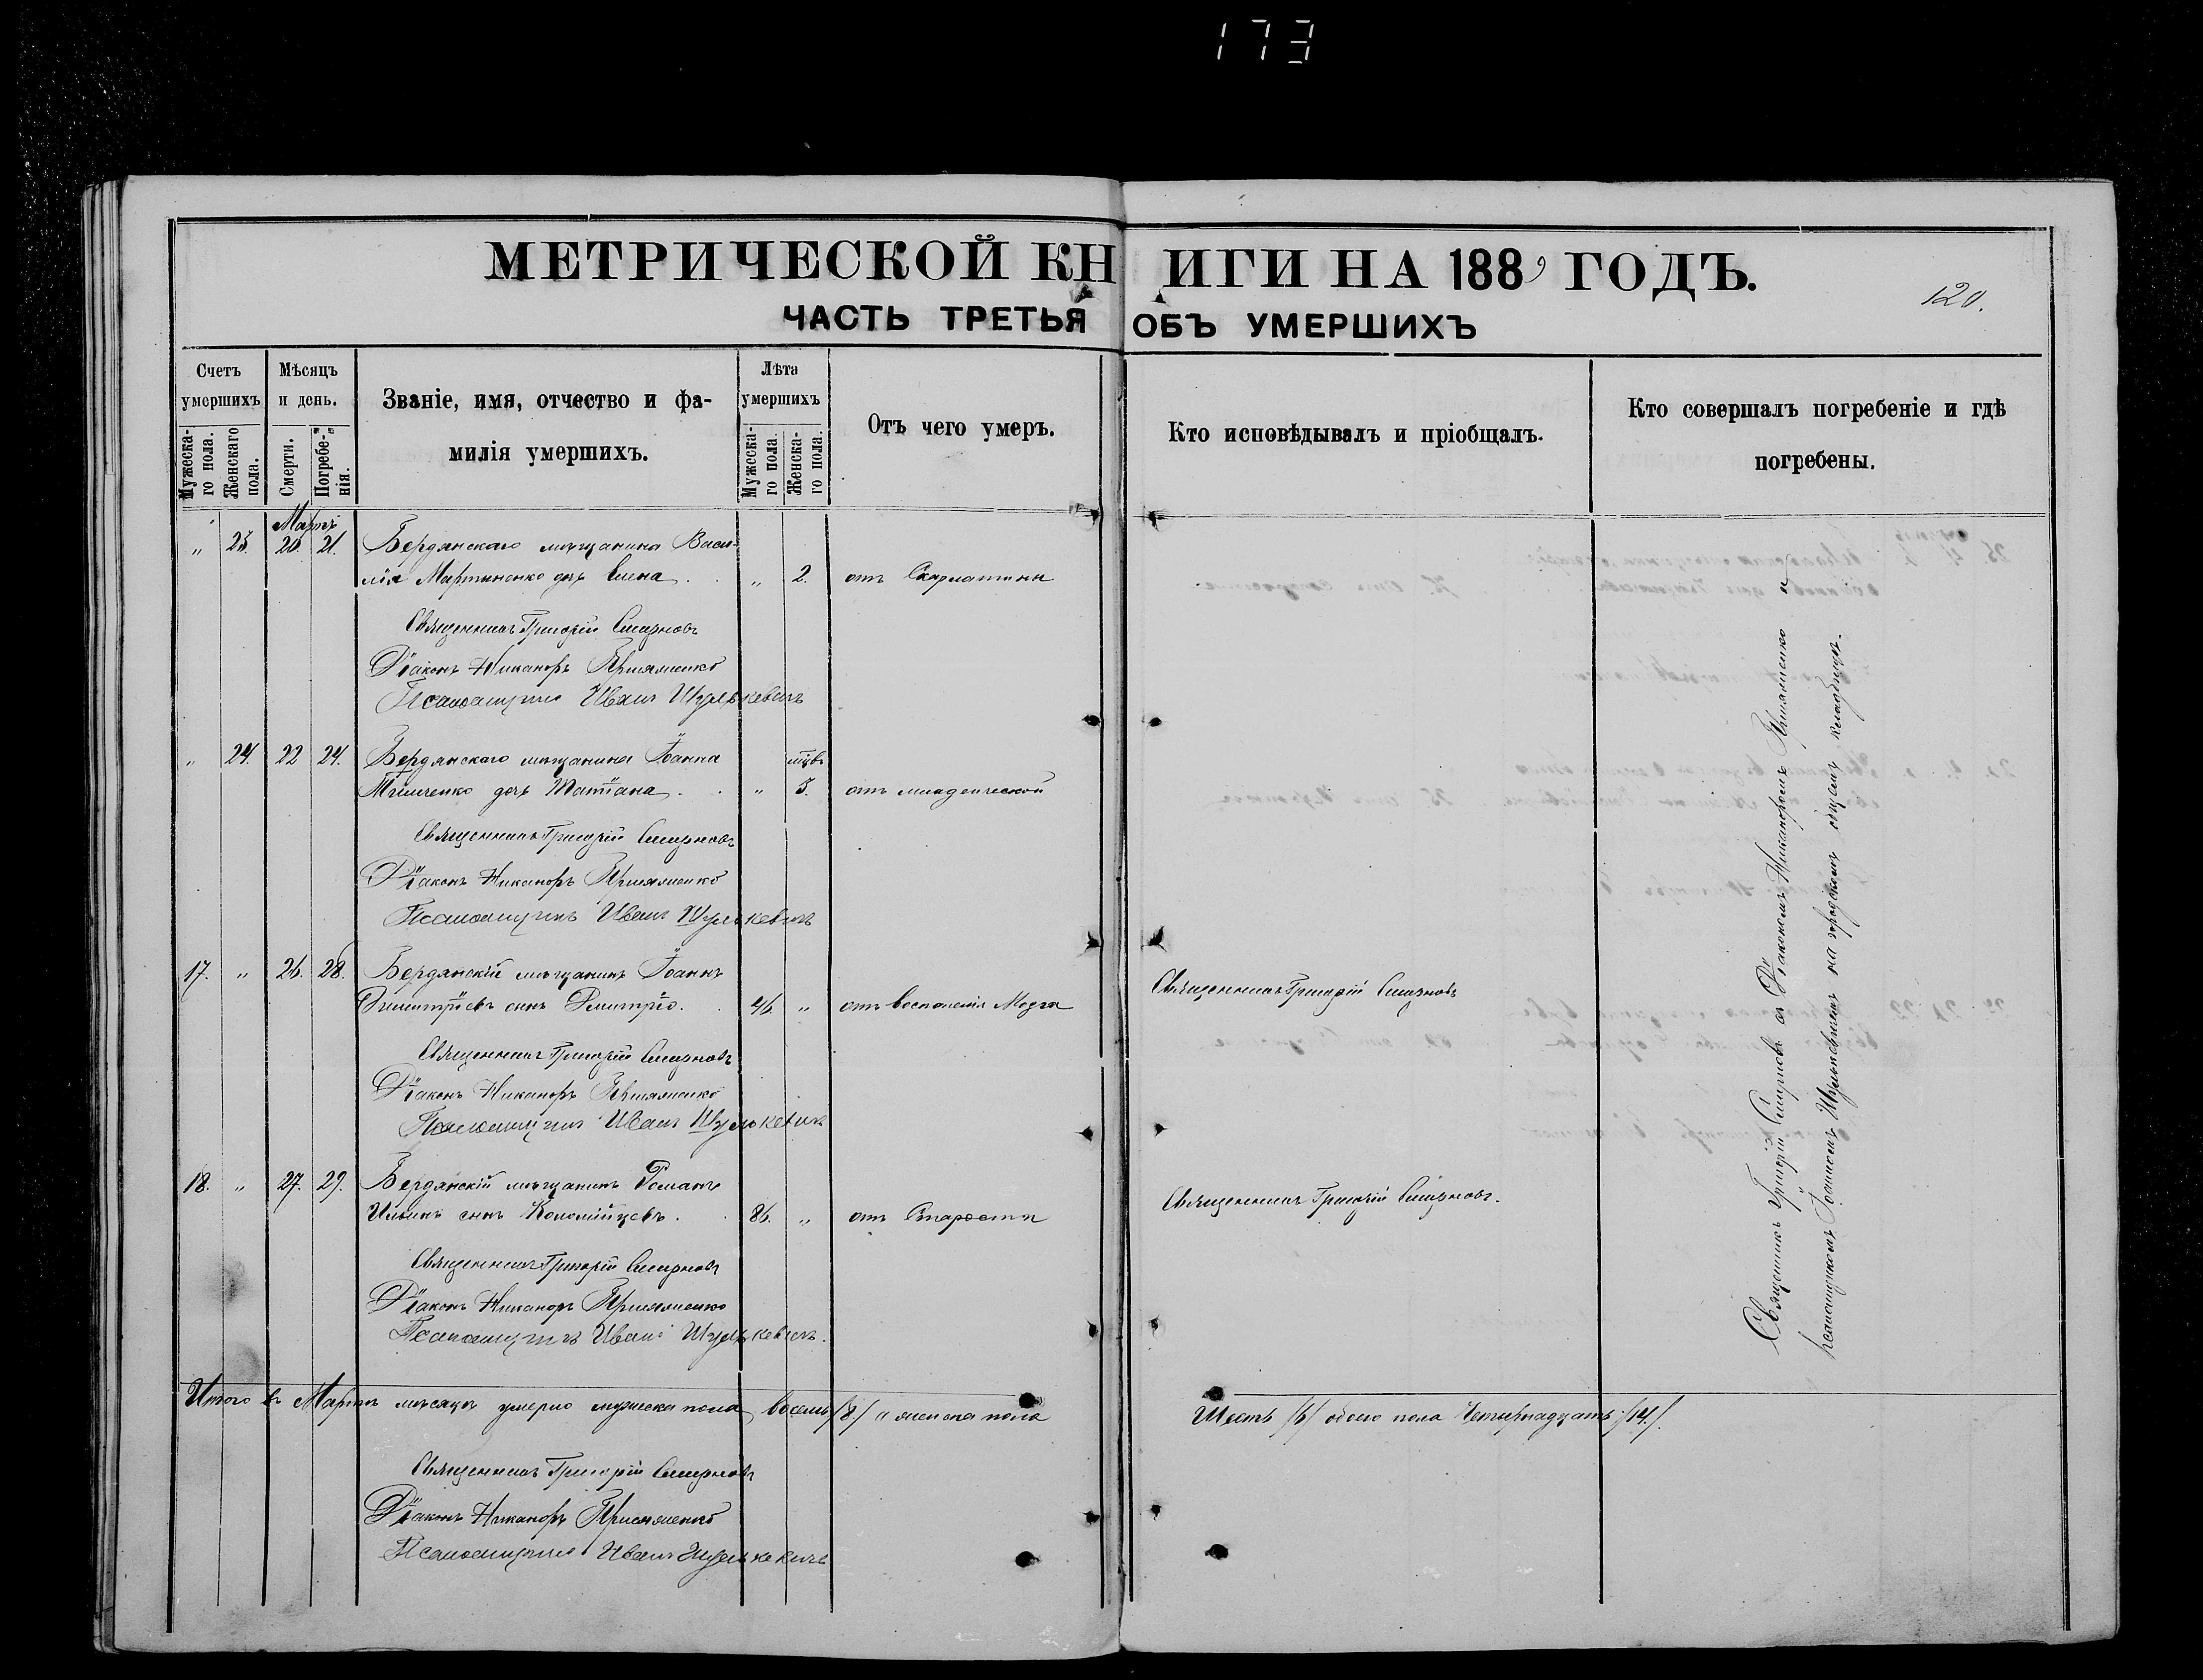 173
МЕТРИЧЕСКОЙ КНИГИ НА 1889 ГОДЪ.
120.
ЧАСТЬ ТРЕТЬЯ ОБЪ УМЕРШИХЪ
Счетъ умершихъ
Мужескаго пола.
Женскаго пола.
Мѣсяцъ и день.
Смерти.
Погребенія.
Званіе, имя, отчество и фамилія умершихъ.
Лѣта умершихъ
Мужескаго пола.
Женскаго пола.
Отъ чего умеръ.
Кто исповѣдывалъ и пріобщалъ.
Кто совершалъ погребеніе и гдѣ погребены.
Мартъ
„ 23. 20. 21. Бердянскаго мѣщанина Васи-
лія Мартыненко дочь Елена . . „ 2. отъ Скарлатины
Священникъ Григорій Смирновъ
Діаконъ Никаноръ
Псаломщикъ Иванъ Шулькевичъ
„ 24. 22 24. Бердянскаго мѣщанина Іоанна мцвъ
дочь Татіана . . „ 5. отъ младенческой
Священникъ Григорій Смирновъ
Діаконъ Никаноръ
Псаломщикъ Иванъ Шулькевичъ
17. „ 26. 28. Бердянскій мѣщанинъ Іоаннъ
Димитріевъ сынъ . . 46. „ отъ воспаленія Мозга
Священникъ Григорій Смирновъ
Священникъ Григорій Смирновъ
Діаконъ Никаноръ
Псаломщикъ Иванъ Шулькевичъ
18. „ 27. 29. Бердянскій мѣщанинъ Романъ
Ильинъ сынъ Коломійцевъ . . 86. „ отъ Старости
Священникъ Григорій Смирновъ.
Священникъ Григорій Смирновъ
Діаконъ Никаноръ
Псаломщикъ Иванъ Шулькевичъ.
Священникъ Григорій Смирновъ съ Діакономъ Никаноромъ и
псаломщикомъ Іоанномъ Шулькевичемъ на городскомъ общемъ кладбищѣ.
Итого въ Мартѣ мѣсяцѣ умерло мужеска пола восемь /8/ а женска пола Шесть /6/ обоего пола Четырнадцать /14/.
Священникъ Григорій Смирновъ
Діаконъ Никаноръ
Псаломщикъ Иванъ Шулькевичъ